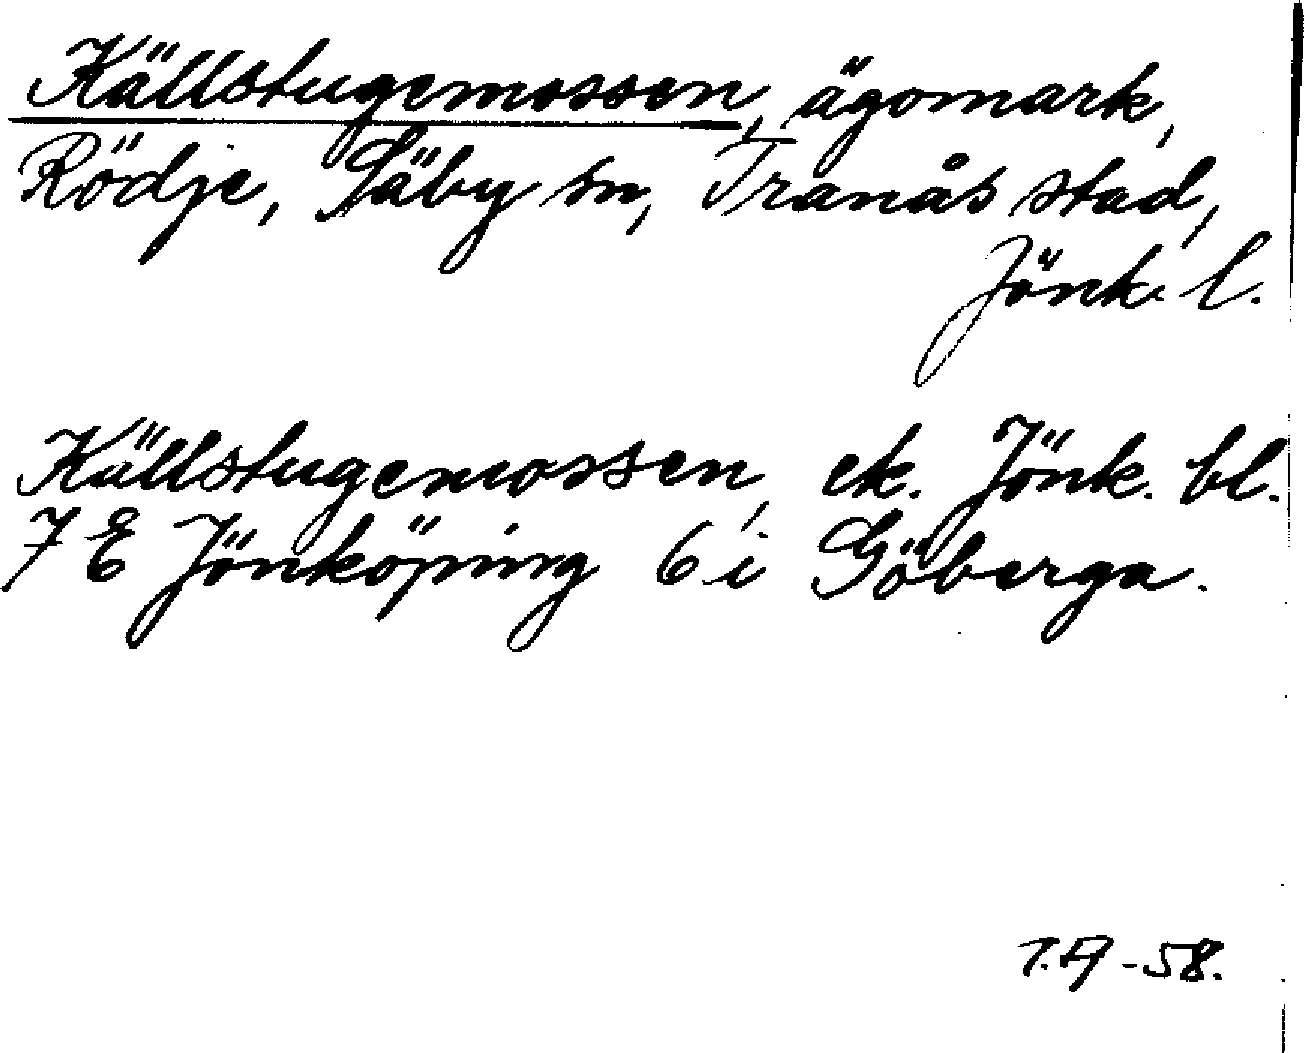 Källstugemossen, ägomark,
Rödje, Säby sn, Tranås stad,
Jönk. l.
Källstugemossen, ek. Jönk. bl.
7 E Jönköping 6 i Göberga.
T.A -58.